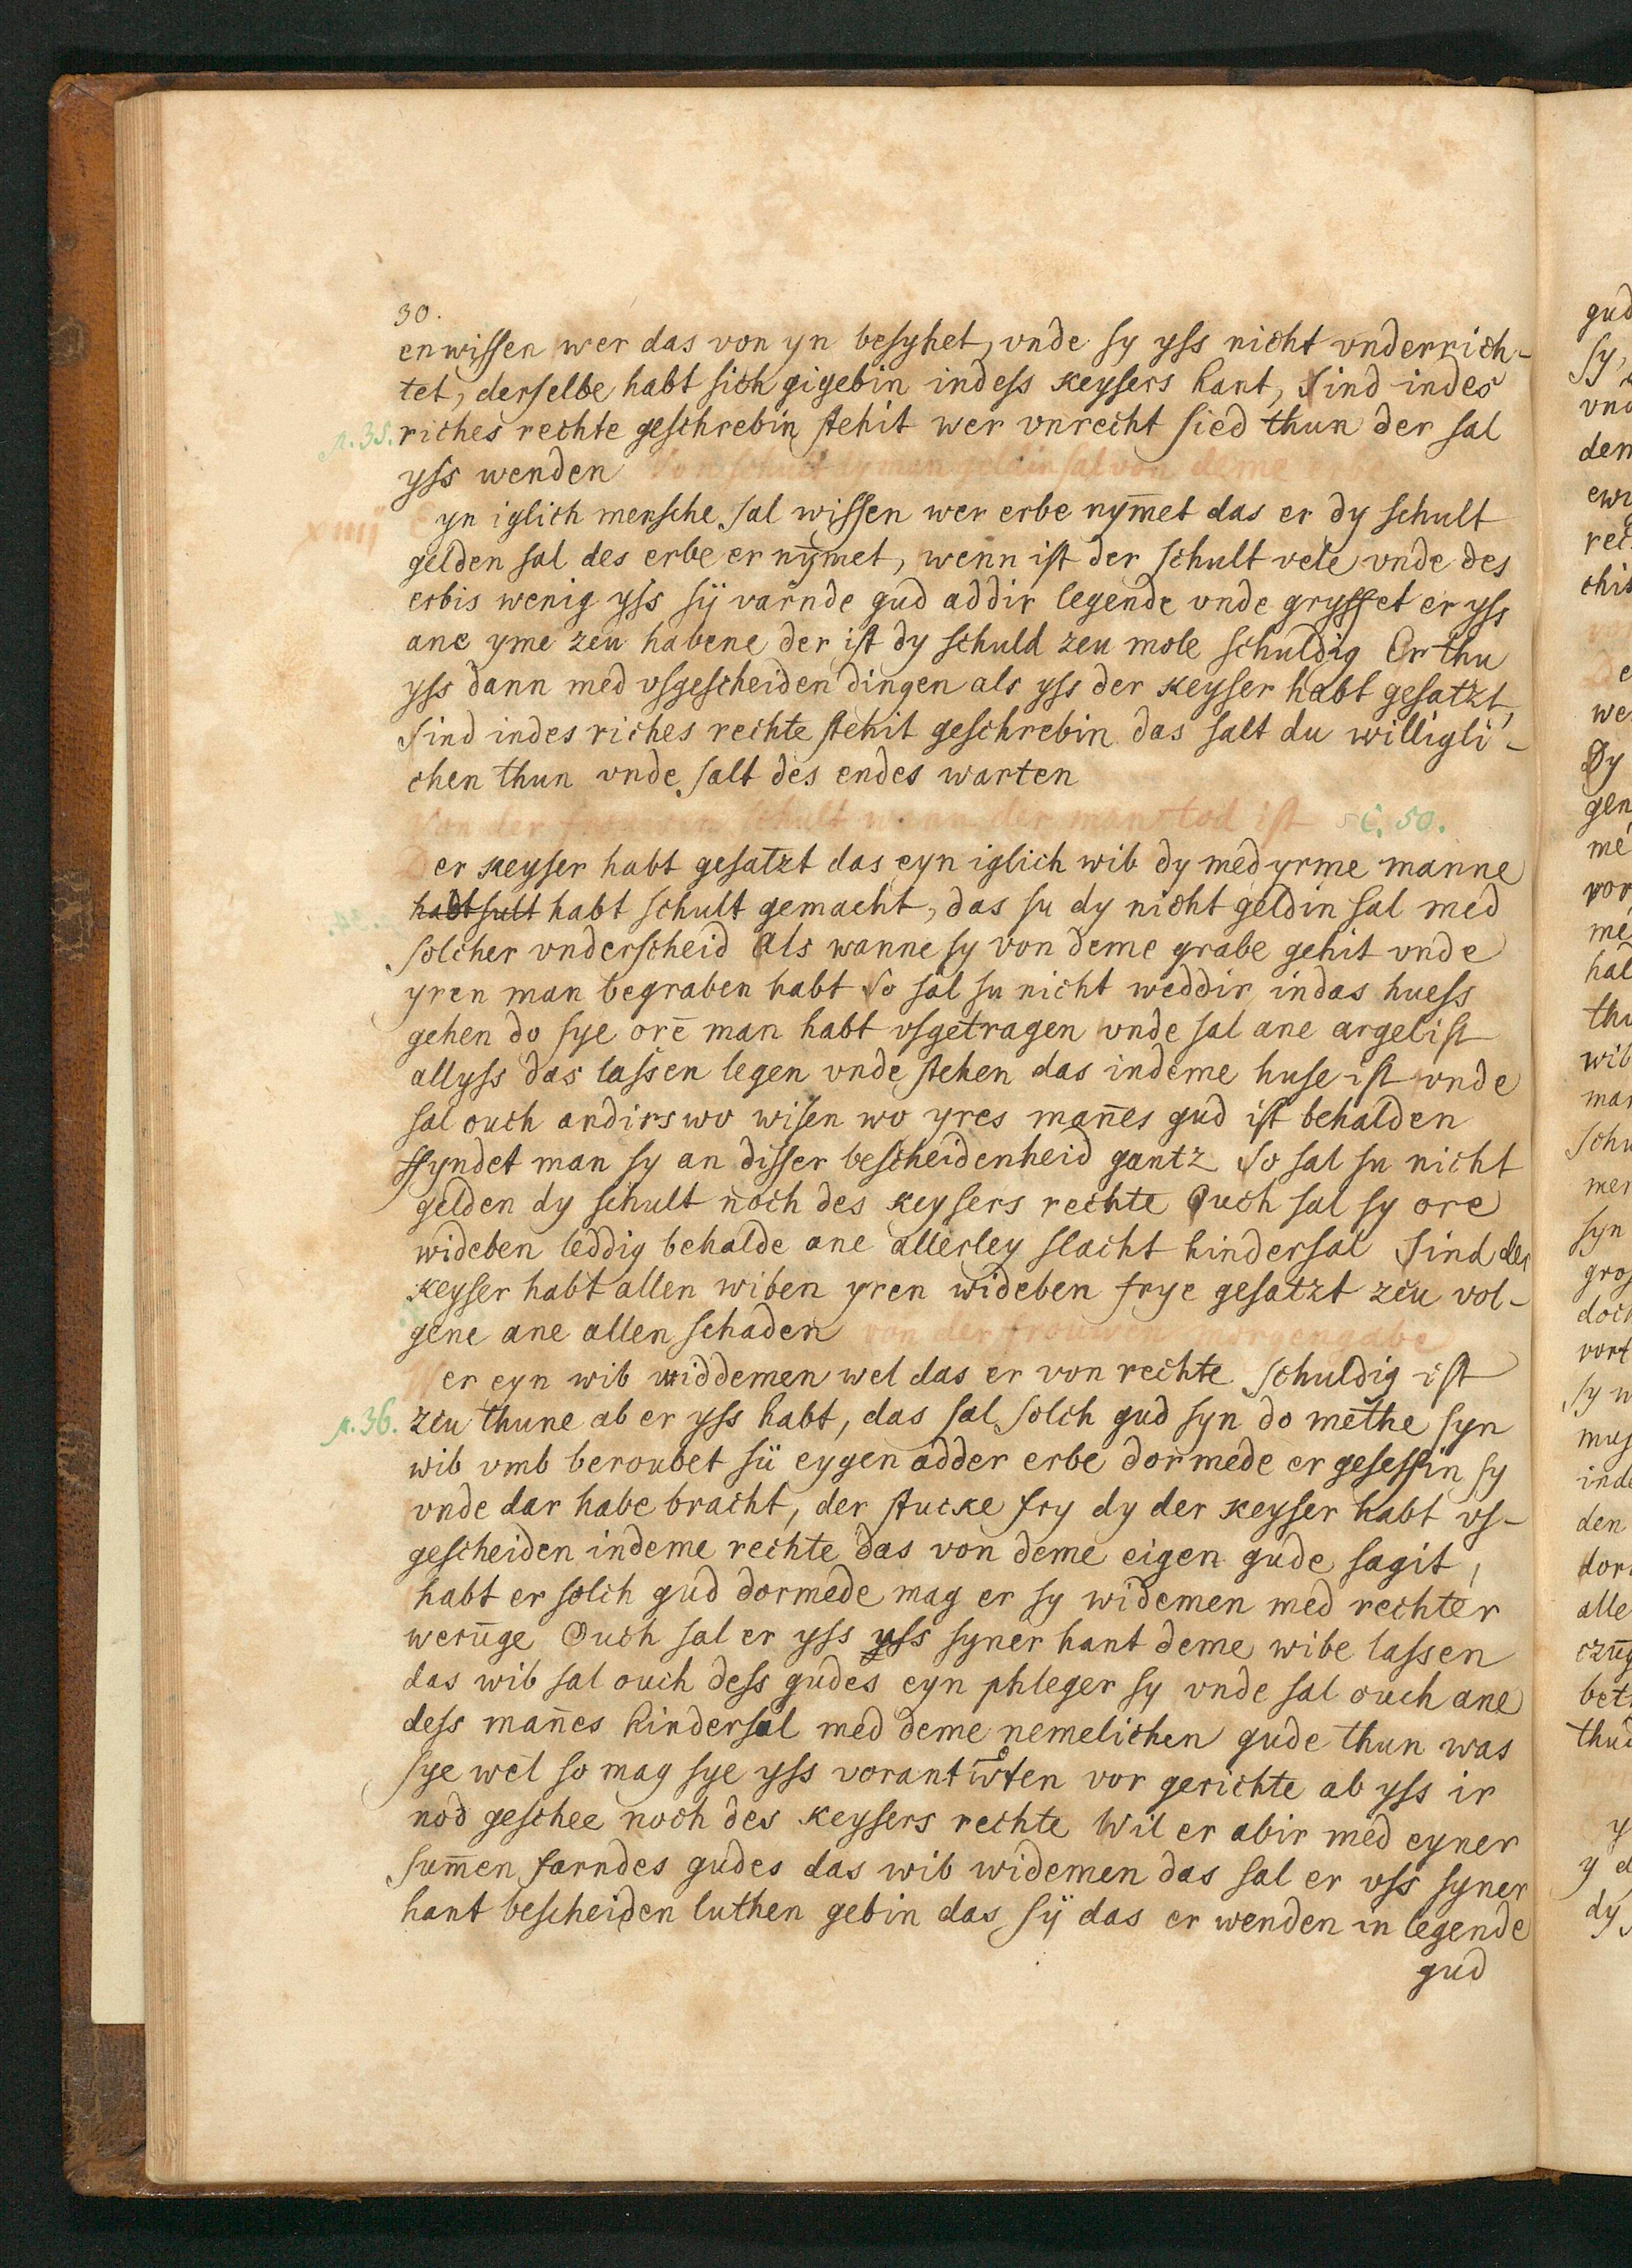 30.
enwissen wer das von yn besyhet, vnde sy yss nicht vnderrich-
tet, derselbe habt sich gigebin indess keysers hant, Sind indes
p. 35. riches rechte geschrebin stehit wer vnrecht sied thun der sal
yss wenden Von schult dy man geldin sal von deme
xiiij Eyn iglich mensche sal wissen wer erbe nym̄et das er dy schult
gelden sal des erbe er nym̄et, wenn ist der schult vele vnde des
erbis wenig yss sÿ varnde gud addir legende vnde gryffet er yss
ane yme zcu habene der ist dy schuld zcu mole schuldig Er thu
yss dann med vsgescheiden dingen als yss der keyser habt gesatzt,
Sind indes riches rechte stehit geschrebin das salt du willigli-
chen thun vnde salt des endes warten
Von der frouwen schult wenn der man tod ist c. 50.
Der keyser habt gesatzt das eyn iglich wib dy med yrme manne
habt sult habt schult gemacht, das su dy nicht geldin sal med
solcher vnderscheid Als wanne sy von deme grabe gehit vnde
yren man begraben habt So sal su nicht weddir indas huess
gehen do sye orē man habt vsgetragen vnde sal ane argelist
allyss das lassen legen vnde stehen das indeme huse ist vnde
sal ouch andirswo wisen wo yres man̄es gud ist behalden
ffyndet man sy an disser bescheidenheid gantz So sal su nicht
gelden dy schult noch des keysers rechte Ouch sal sy ore
wideben leddig behalde ane allerley slacht hindersal Sind der
keyser habt allen wiben yren wideben frye gesatzt zcu vol-
gene ane allen schaden von der frouwen morgengabe
Wer eyn wib widdemen wel das er von rechte schuldig ist
p. 36. zcu thune ab er yss habt, das sal solch gud syn do methe syn
wib vmb beroubet sü eygen adder erbe dormede er gesessin sy
vnde dar habe bracht, der stucke fry dy der keyser habt vs-
gescheiden indeme rechte das von deme eigen gude sagit,
habt er solch gud dormede mag er sy widemen med rechter
werūge Ouch sal er yss yss syner hant deme wibe lassen
das wib sal ouch dess gudes eyn phleger sy vnde sal ouch ane
dess man̄es hindersal med deme nemelichen gude thun was
sye wel so mag sye yss vorantwͦrten vor gerichte ab yss ir
nod geschee noch des keysers rechte Wil er abir med eyner
sum̄en farndes gudes das wib widemen das sal er vss syner
hant bescheiden luthen gebin das sÿ das er wenden in legende
gud